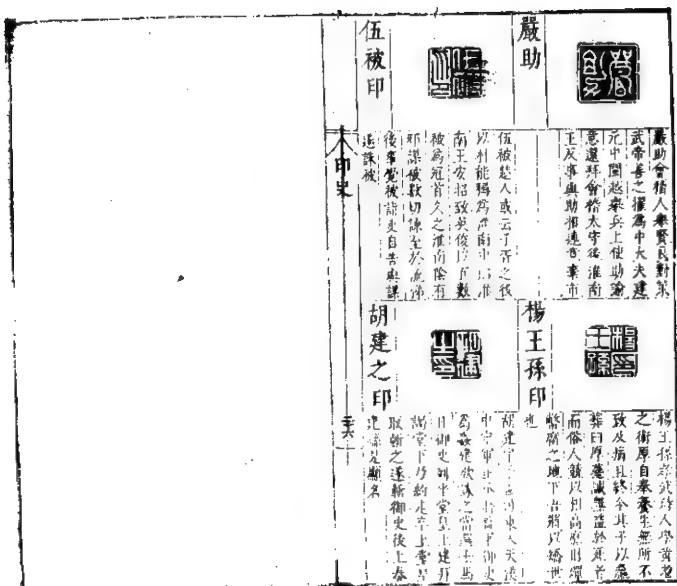 嚴助
嚴助會稽人舉賢良對策
武帝善之擢爲中大夫建
元中閩越舉兵上使助諭
意還拜會稽太守後淮南
王反事與助相連竟棄市
伍被印
伍被楚人或云子胥之後
以材能稱爲淮南中郎淮
南王安招致英俊百數
被爲冠首久之淮南陰有
邪謀被數切諫至於流涕
後事覺被詣吏自告與謀
遂誅被
楊王孫印
楊王孫孝武時人學黃老
之術厚自奉養生無所不
致及病且終令其子以羸
葬曰厚葬誠無益於死者
而俗人競以相高靡財殫
幣腐之地下吾將以矯世
也
胡建之印
胡建字子孟河東人天漢
中守軍正丞時監軍御史
爲姦建欲誅之當選士馬
日御史坐堂皇上建
謁堂下
取斬之遂斬御史後上奏
建繇是顯名
印史
三六